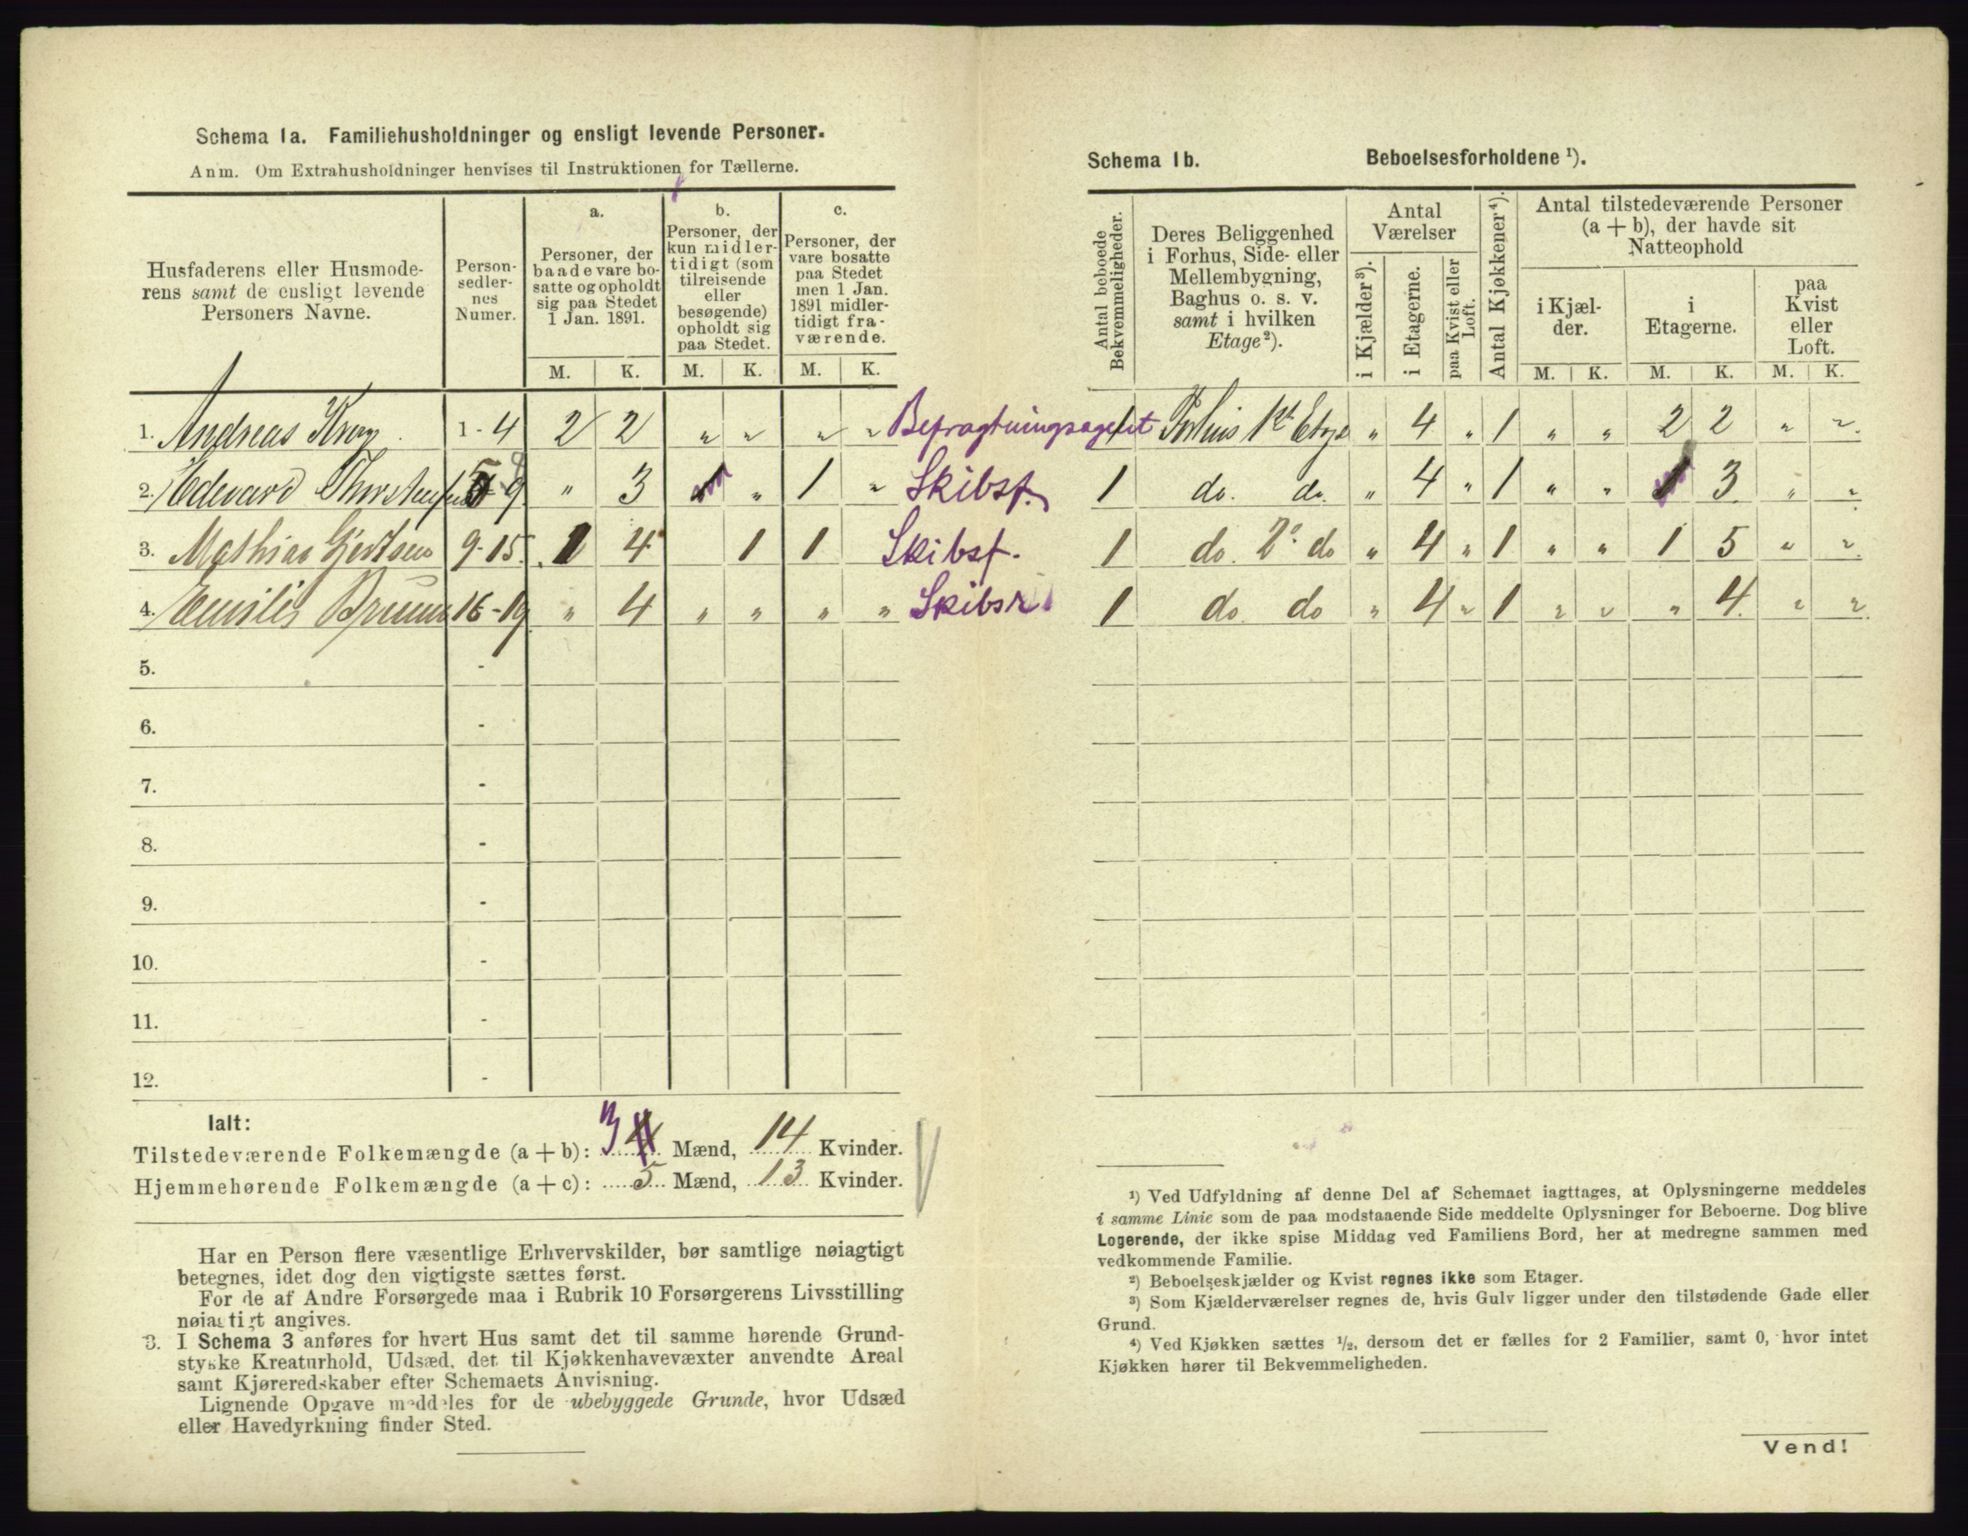 Schema 1a. Familiehusholdninger og ensligt levende Personer.
Anm. Om Extrahusholdninger henvises til Instruktionen for Tællerne.
Husfaderens eller Husmode-
rens samt de ensligt levende
Personers Navne.
Person-
sedler-
nes
Numer.
a.
Personer, der
baade vare bo-
satte og opholdt
sig paa Stedet
1 Jan. 1891.
b.
Personer, der
kun midler-
tidigt (som
tilreisende
eller
besøgende)
opholdt sig
paa Stedet.
c.
Personer, der
vare bosatte
paa Stedet
men 1 Jan.
1891 midler-
tidigt fra-
værende.
M. K. M. K. M. K.
1. Andreas 1-4 2 2 „ „ „ „ Befragtningsagent
2. Edevard 5-9 „ 3 „ 1 „ Skibsf.
3. Mathias Gjertsen 9-15. 1 4 1 1 Skibsf.
4. Emilie Bruun 16-19 „ 4 „ „ „ „ Skibsr
5. -
6. -
7. -
8. -
9. -
10. -
11. -
12. -
Ialt:
Tilstedeværende Folkemængde (a + b): 3 4 Mænd, 14 Kvinder.
Hjemmehørende Folkemængde (a + c): 5 Mænd, 13 Kvinder.
Har en Person flere væsentlige Erhvervskilder, bør samtlige nøiagtigt
betegnes, idet dog den vigtigste sættes først.
For de af Andre Forsørgede maa i Rubrik 10 Forsørgerens Livsstilling
nøiagtigt angives.
3. I Schema 3 anføres for hvert Hus samt det til samme hørende Grund-
stykke Kreaturhold, Udsæd, det til Kjøkkenhavevæxter anvendte Areal
samt Kjøreredskaber efter Schemaets Anvisning.
Lignende Opgave meddeles for de ubebyggede Grunde, hvor Udsæd
eller Havedyrkning finder Sted.
Schema 1b. Beboelsesforholdene ¹).
Antal beboede
Bekvemmeligheder.
Deres Beliggenhed
i Forhus, Side- eller
Mellembygning,
Baghus o. s. v.
samt i hvilken
Etage ²).
Antal
Værelser
i Kjælder ³).
i Etagerne.
paa Kvist eller
Loft.
Antal Kjøkkener ⁴).
Antal tilstedeværende Personer
(a + b), der havde sit
Natteophold
i Kjæl-
der.
i
Etagerne.
paa
Kvist
eller
Loft.
M. K. M. K. M. K.
1 Forhus 1st Etage „ 4 „ 1 „ „ 2 2 „ „
1 do. do. „ 4 „ 1 „ „ 1 3 „ „
1 do. 2. do „ 4 „ 1 „ „ 1 5 „ „
1 do. do „ 4 „ 1 „ „ „ 4. „ „
¹) Ved Udfyldning af denne Del af Schemaet iagttages, at Oplysningerne meddeles
i samme Linie som de paa modstaaende Side meddelte Oplysninger for Beboerne. Dog blive
Logerende, der ikke spise Middag ved Familiens Bord, her at medregne sammen med
vedkommende Familie.
²) Beboelseskjælder og Kvist regnes ikke som Etager.
³) Som Kjælderværelser regnes de, hvis Gulv ligger under den tilstødende Gade eller
Grund.
⁴) Ved Kjøkken sættes ½, dersom det er fælles for 2 Familier, samt 0, hvor intet
Kjøkken hører til Bekvemmeligheden.
Vend!